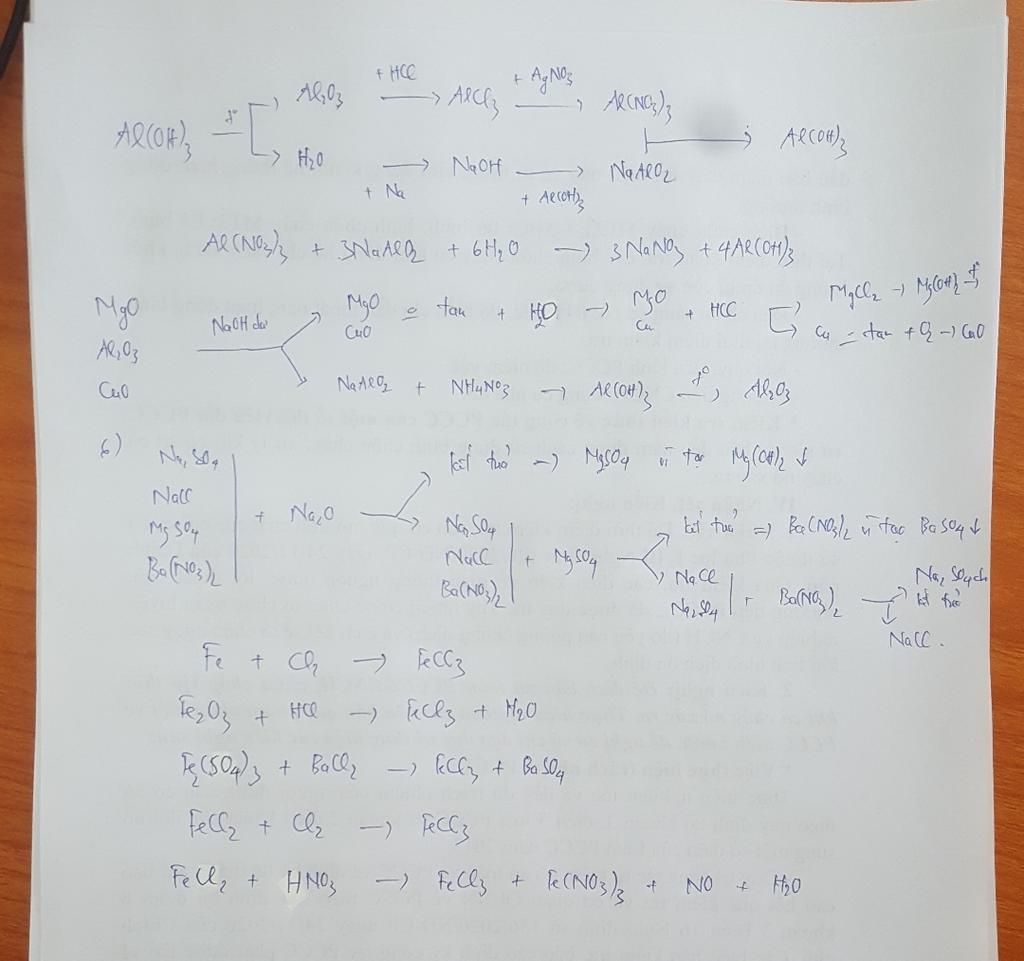 + HCl + AgNO3
Al(OH)3 —t°→ Al2O3 → AlCl3 → Al(NO3)3
→ Al(OH)3
H2O → NaOH → NaAlO2
+ Na + Al(OH)3
Al(NO3)3 + 3NaAlO2 + 6H2O → 3NaNO3 + 4Al(OH)3
MgO
Al2O3
CuO
NaOH dư
MgO
CuO
tan + H2O → MgO
Cu
+ HCl
MgCl2 → Mg(OH)2 t°→
Cu tan + O2 → CuO
NaAlO2 + NH4NO3 → Al(OH)3 —t°→ Al2O3
6)
Na2SO4
NaCl
MgSO4
Ba(NO3)2
+ Na2O
kết tủa → MgSO4 vì tạo Mg(OH)2 ↓
Na2SO4
NaCl
Ba(NO3)2
+ MgSO4
kết tủa ⇒ Ba(NO3)2 vì tạo BaSO4 ↓
NaCl
Na2SO4
+ Ba(NO3)2
Na2SO4
kết tủa
NaCl.
Fe + Cl2 → FeCl3
Fe2O3 + HCl → FeCl3 + H2O
Fe2(SO4)3 + BaCl2 → FeCl3 + BaSO4
FeCl2 + Cl2 → FeCl3
FeCl2 + HNO3 → FeCl3 + Fe(NO3)3 + NO + H2O